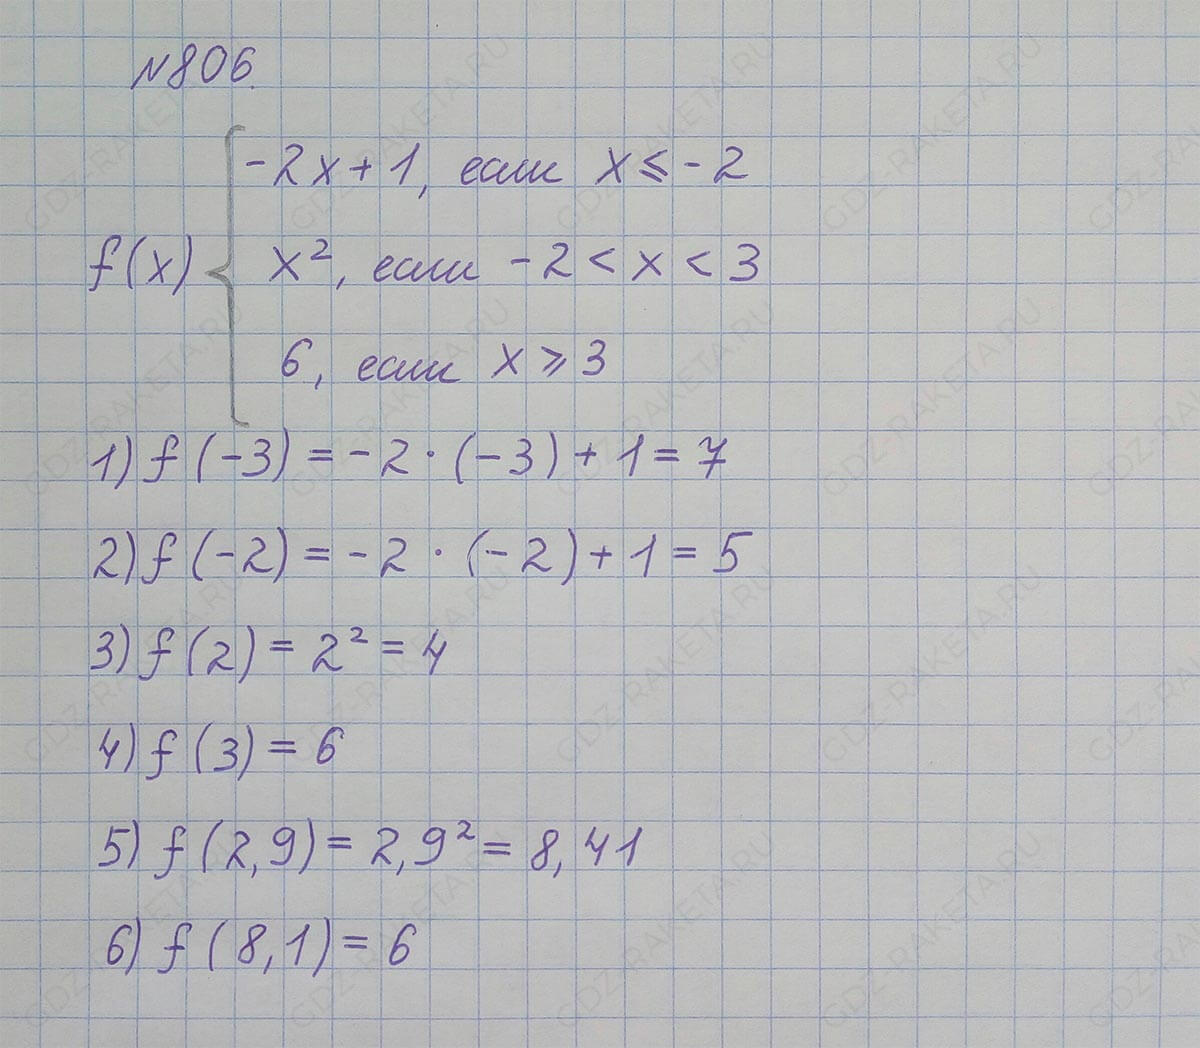 №806.
-2x+1, если x ⩽ -2
f(x) { x², если -2 < x < 3
6, если x ⩾ 3
1) f(-3) = -2 · (-3) + 1 = 7
2) f(-2) = -2 · (-2) + 1 = 5
3) f(2) = 2² = 4
4) f(3) = 6
5) f(2,9) = 2,9² = 8,41
6) f(8,1) = 6
GDZ-RAKETA.RU